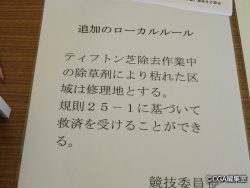 追加のローカルルール
ティフトン芝除去作業中
の除草剤により枯れた区
域は修理地とする。
規則25-1に基づいて
救済を受けることができ
る。
競技委員長
©CGA編集室